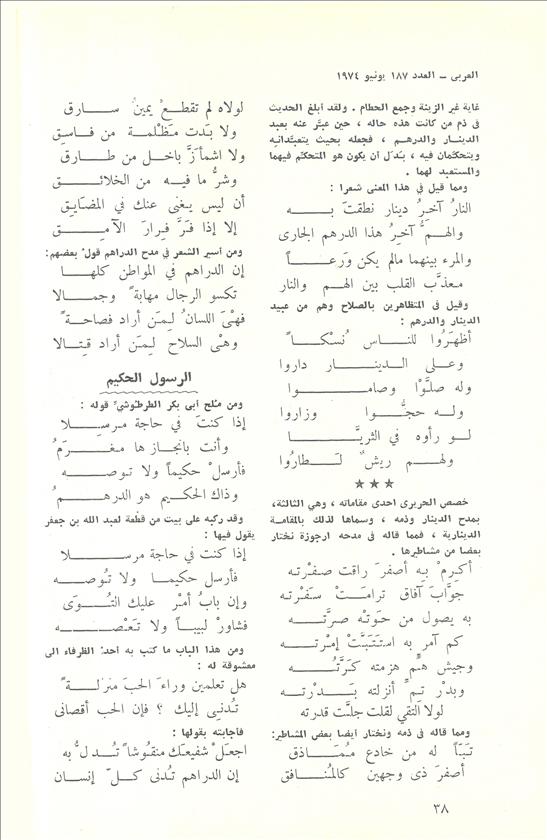 العربى - العدد ١٨٧ يونيو ١٩٧٤
غاية غير الزينة وجمع الحطام . ولقد أبلغ الحديث
فى ذم من كانت هذه حاله ، حين عبَّر عنه بعبد
الدينار والدرهم ، فجعله بحيث يتعبَّدانه
ويتحكّمان فيه ، بَدَل أن يكون هو المتحكّم فيهما
والمستعبد لهما .
ومما قيل فى هذا المعنى شعرا :
النارُ آخِرُ دينار نطقتَ به
والهمُّ آخِرُ هذا الدرهم الجارى
والمرء بينهما مالم يكن وَرِعاً
معذَّب القلب بين الهم والنار
وقيل فى المتظاهرين بالصلاح وهم من عبيد
الدينار والدرهم :
أظهَرُوا للناس نُسْكاً
وعلى الدينار داروا
وله صلَّوْا وصاموا
وله حجُّوا وزاروا
لو رأوه في الثريَّا
ولهم ريشٌ لطارُوا
★★★
خصص الحريرى احدى مقاماته ، وهى الثالثة،
بمدح الدينار وذمه ، وسماها لذلك بالمقامة
الدينارية ، فمما قاله فى مدحه ارجوزة نختار
بعضا من مشاطيرها .
أكرِمْ به أصفرَ راقت صفرته
جَوَّابَ آفاق ترامتْ سَفْرته
به يصول من حَوَتْه صرَّته
كم آمرٍ به استَتَبَّتْ إمْرته
وجيش همٍّ هزمته كَرَّتُه
وبدْر تمٍّ أنزلته بَدْرته
لولا التقى لقلت جلَّت قدرته
ومما قاله فى ذمه ونختار أيضا بعض المشاطير:
تَبّاً له من خادع مُمَاذق
أصفرَ ذى وجهين كالمُنافق
لولاه لم تقطعْ يمينُ سارق
ولا بَدت مَظْلمة من فاسق
ولا اشمأزَّ باخل من طارق
وشرُّ ما فيه من الخلائق
أن ليس يغنى عنك في المضَايق
إلا إذا فَرَّ فِرارَ الآبق
ومن أسير الشعر في مدح الدراهم قولُ بعضهم:
إن الدراهم في المواطن كلها
تكسو الرجال مهابةً وجمالا
فهْىَ اللسانُ لِمَن أراد فصاحةً
وهْى السلاح لِمَن أراد قِتالا
الرسول الحكيم
ومن مُلَح أبى بكر الطرطوشىّ قوله :
إذا كنتَ في حاجة مرسِلا
وأنت بانجازها مغرَمُ
فأرسلْ حكيماً ولا توصه
وذاك الحكيم هو الدرهمُ
وقد ركبه على بيت من قطعة لعبد الله بن جعفر
يقول فيها :
إذا كنت في حاجة مرسلا
فأرسل حكيما ولا تُوصه
وإن بابُ أمْر عليك التَوَى
فشاورْ لبيباً ولا تَعْصه
ومن هذا الباب ما كتب به أحدُ الظرفاء الى
معشوقة له :
هل تعلمين وراءَ الحبّ منزلةً
تُدنى إليك ؟ فإن الحب أقصانى
فأجابته بقولها :
اجعلْ شفيعَك منقُوشاً تُدلُّ به
إن الدراهم تُدنى كلّ إنسان
٣٨